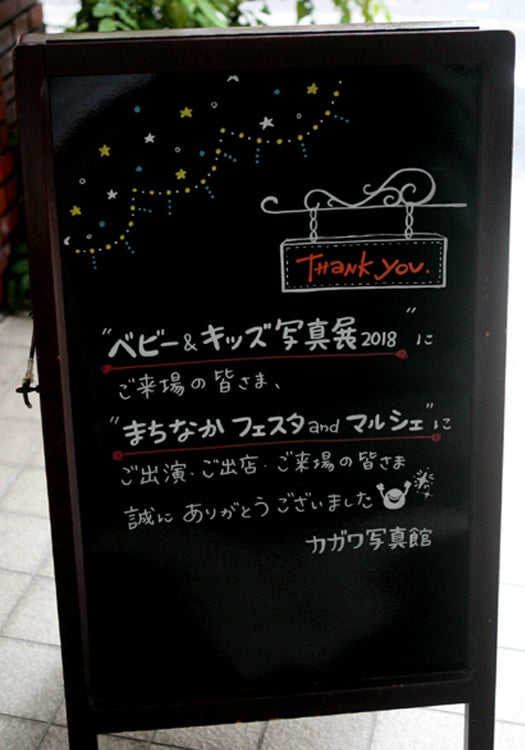 THANK YOU.
"ベビー&キッズ写真展2018"に
ご来場の皆さま、
"まちなかフェスタandマルシェ"に
ご出演・ご出店・ご来場の皆さま
誠にありがとうございました
カガワ写真館